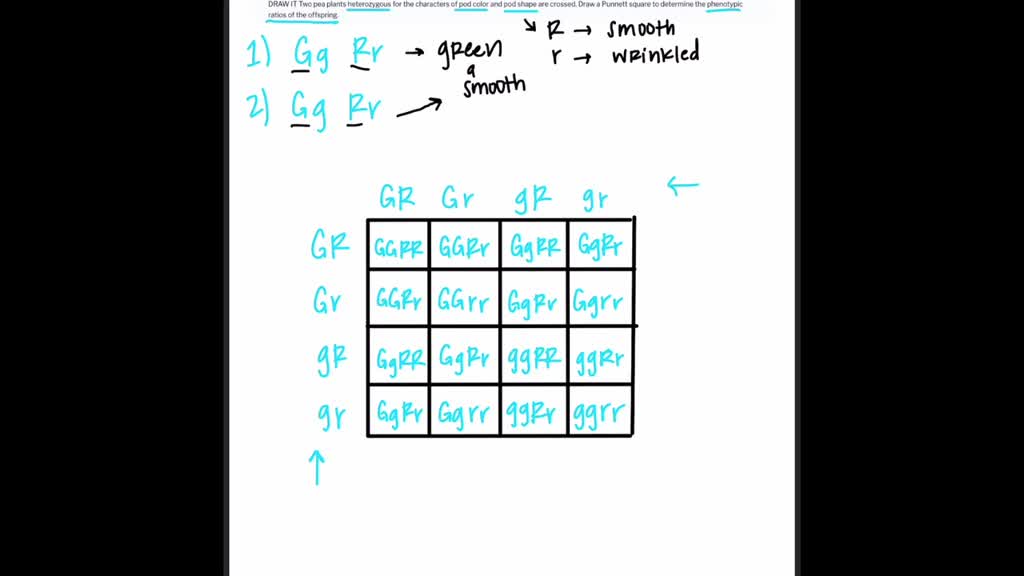 DRAW IT Two pea plants heterozygous for the characters of pod color and pod shape are crossed. Draw a Punnett square to determine the phenotypic
ratios of the offspring.
R → smooth
r → wrinkled
1) Gg Rr → green
&
smooth
2) Gg Rr →
←
GR Gr gR gr
GR GGRR GGRr GgRR GgRr
Gr GGRr GGrr GgRr Ggrr
gR GgRR GgRr ggRR ggRr
gr GgRr Ggrr ggRr ggrr
↑